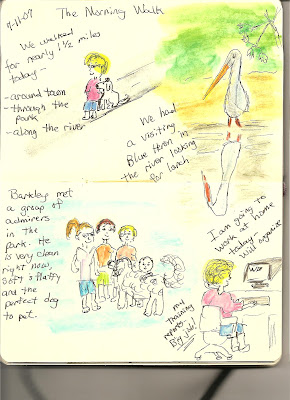 9-11-09
The Morning Walk
We walked
for nearly 1 1/2 miles
today -
- around town
- through the
park
- along the river
We had
a visiting
Blue Heron in
the river looking
for lunch
Barkley met
a group of
admirers
in the
park. He
is very clean
right now,
soft & fluffy
and the
perfect dog
to pet.
I am going to
work at home
today
Will organize
my
training
reports -
Big job!